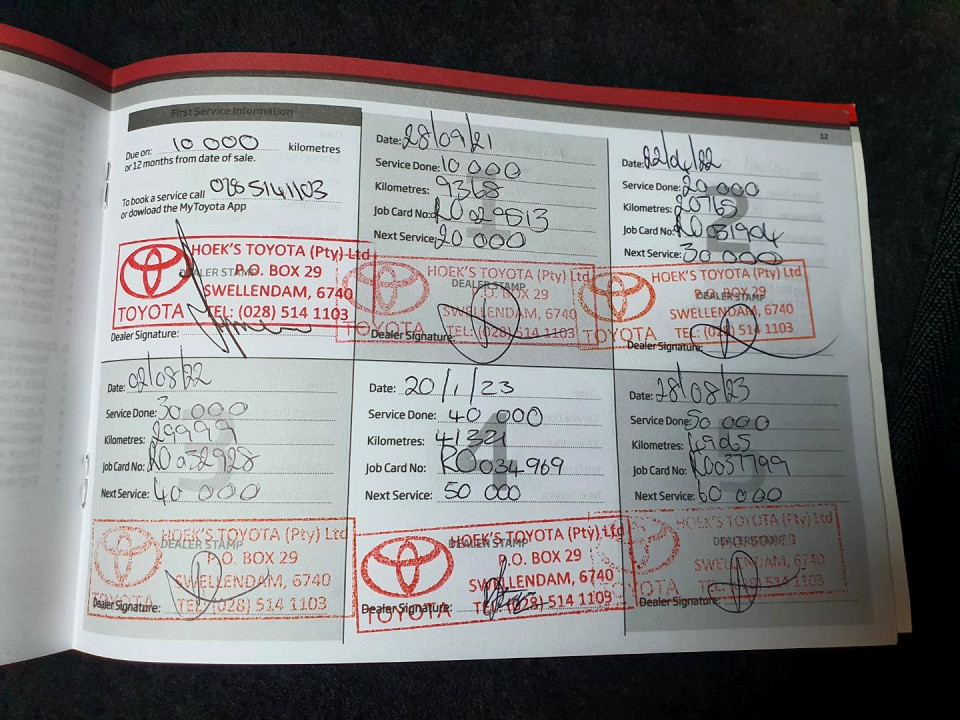 12
First Service Information
Due on: 10 000 kilometres
or 12 months from date of sale.
To book a service call 0285141103
or dowload the MyToyota App
HOEK'S TOYOTA (Pty) Ltd
DEALER STAMP
P.O. BOX 29
SWELLENDAM, 6740
TOYOTA TEL: (028) 514 1103
Dealer Signature:
1
Date: 28/09/21
Service Done: 10 000
Kilometres: 9368
Job Card No: R0029513
Next Service: 20 000
HOEK'S TOYOTA (Pty) Ltd
DEALER STAMP
P.O. BOX 29
SWELLENDAM, 6740
TOYOTA TEL: (028) 514 1103
Dealer Signature:
2
Date: 22/04/22
Service Done: 20 000
Kilometres: 20765
Job Card No: R0031904
Next Service: 30 000
HOEK'S TOYOTA (Pty) Ltd
P.O. BOX 29
DEALER STAMP
SWELLENDAM, 6740
TOYOTA TEL: (028) 514 1103
Dealer Signature:
3
Date: 02/08/22
Service Done: 30 000
Kilometres: 29999
Job Card No: R0032928
Next Service: 40 000
HOEK'S TOYOTA (Pty) Ltd
DEALER STAMP
P.O. BOX 29
SWELLENDAM, 6740
Dealer Signature: TEL: (028) 514 1103
TOYOTA
4
Date: 20/1/23
Service Done: 40 000
Kilometres: 41221
Job Card No: R0034969
Next Service: 50 000
HOEK'S TOYOTA (Pty) Ltd
DEALER STAMP
P.O. BOX 29
SWELLENDAM, 6740
Dealer Signature: TEL: (028) 514 1103
TOYOTA
5
Date: 28/08/23
Service Done: 50 000
Kilometres:
Job Card No: R0037799
Next Service: 60 000
HOEK'S TOYOTA (Pty) Ltd
DEALER STAMP
P.O. BOX 29
SWELLENDAM, 6740
TOYOTA TEL: (028) 514 1103
Dealer Signature: